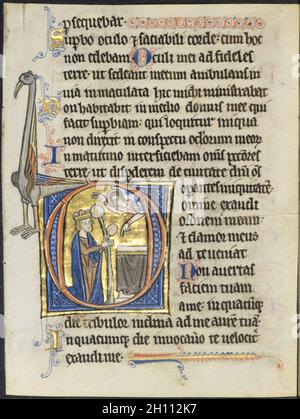 psequebar.
Supbo oculo & saciabili corde: cum hoc
non edebam Oculi mei ad fideles
terre ut sedeant mecum ambulans in
uia inmaculata hic michi ministrabat
Non habitabit in medio domus mee qui
facit supbiam: qui loquitur iniqua
non direxit in conspectu oculorum meoꝝ
In matutino interficiebam om̄s
terre ut disperderem de ciuitate dn̄i
opantes iniquitatē
omine exaudi
meam:
& clamor meus
ad te ueniat
Non auertas
faciem tuam
a me: in quacūq;
die tribulor inclina ad me aurē tuā
In quacūq; die inuocauero te uelociter
exaudi me.
alamy
Image ID: 2H112K7
www.alamy.com